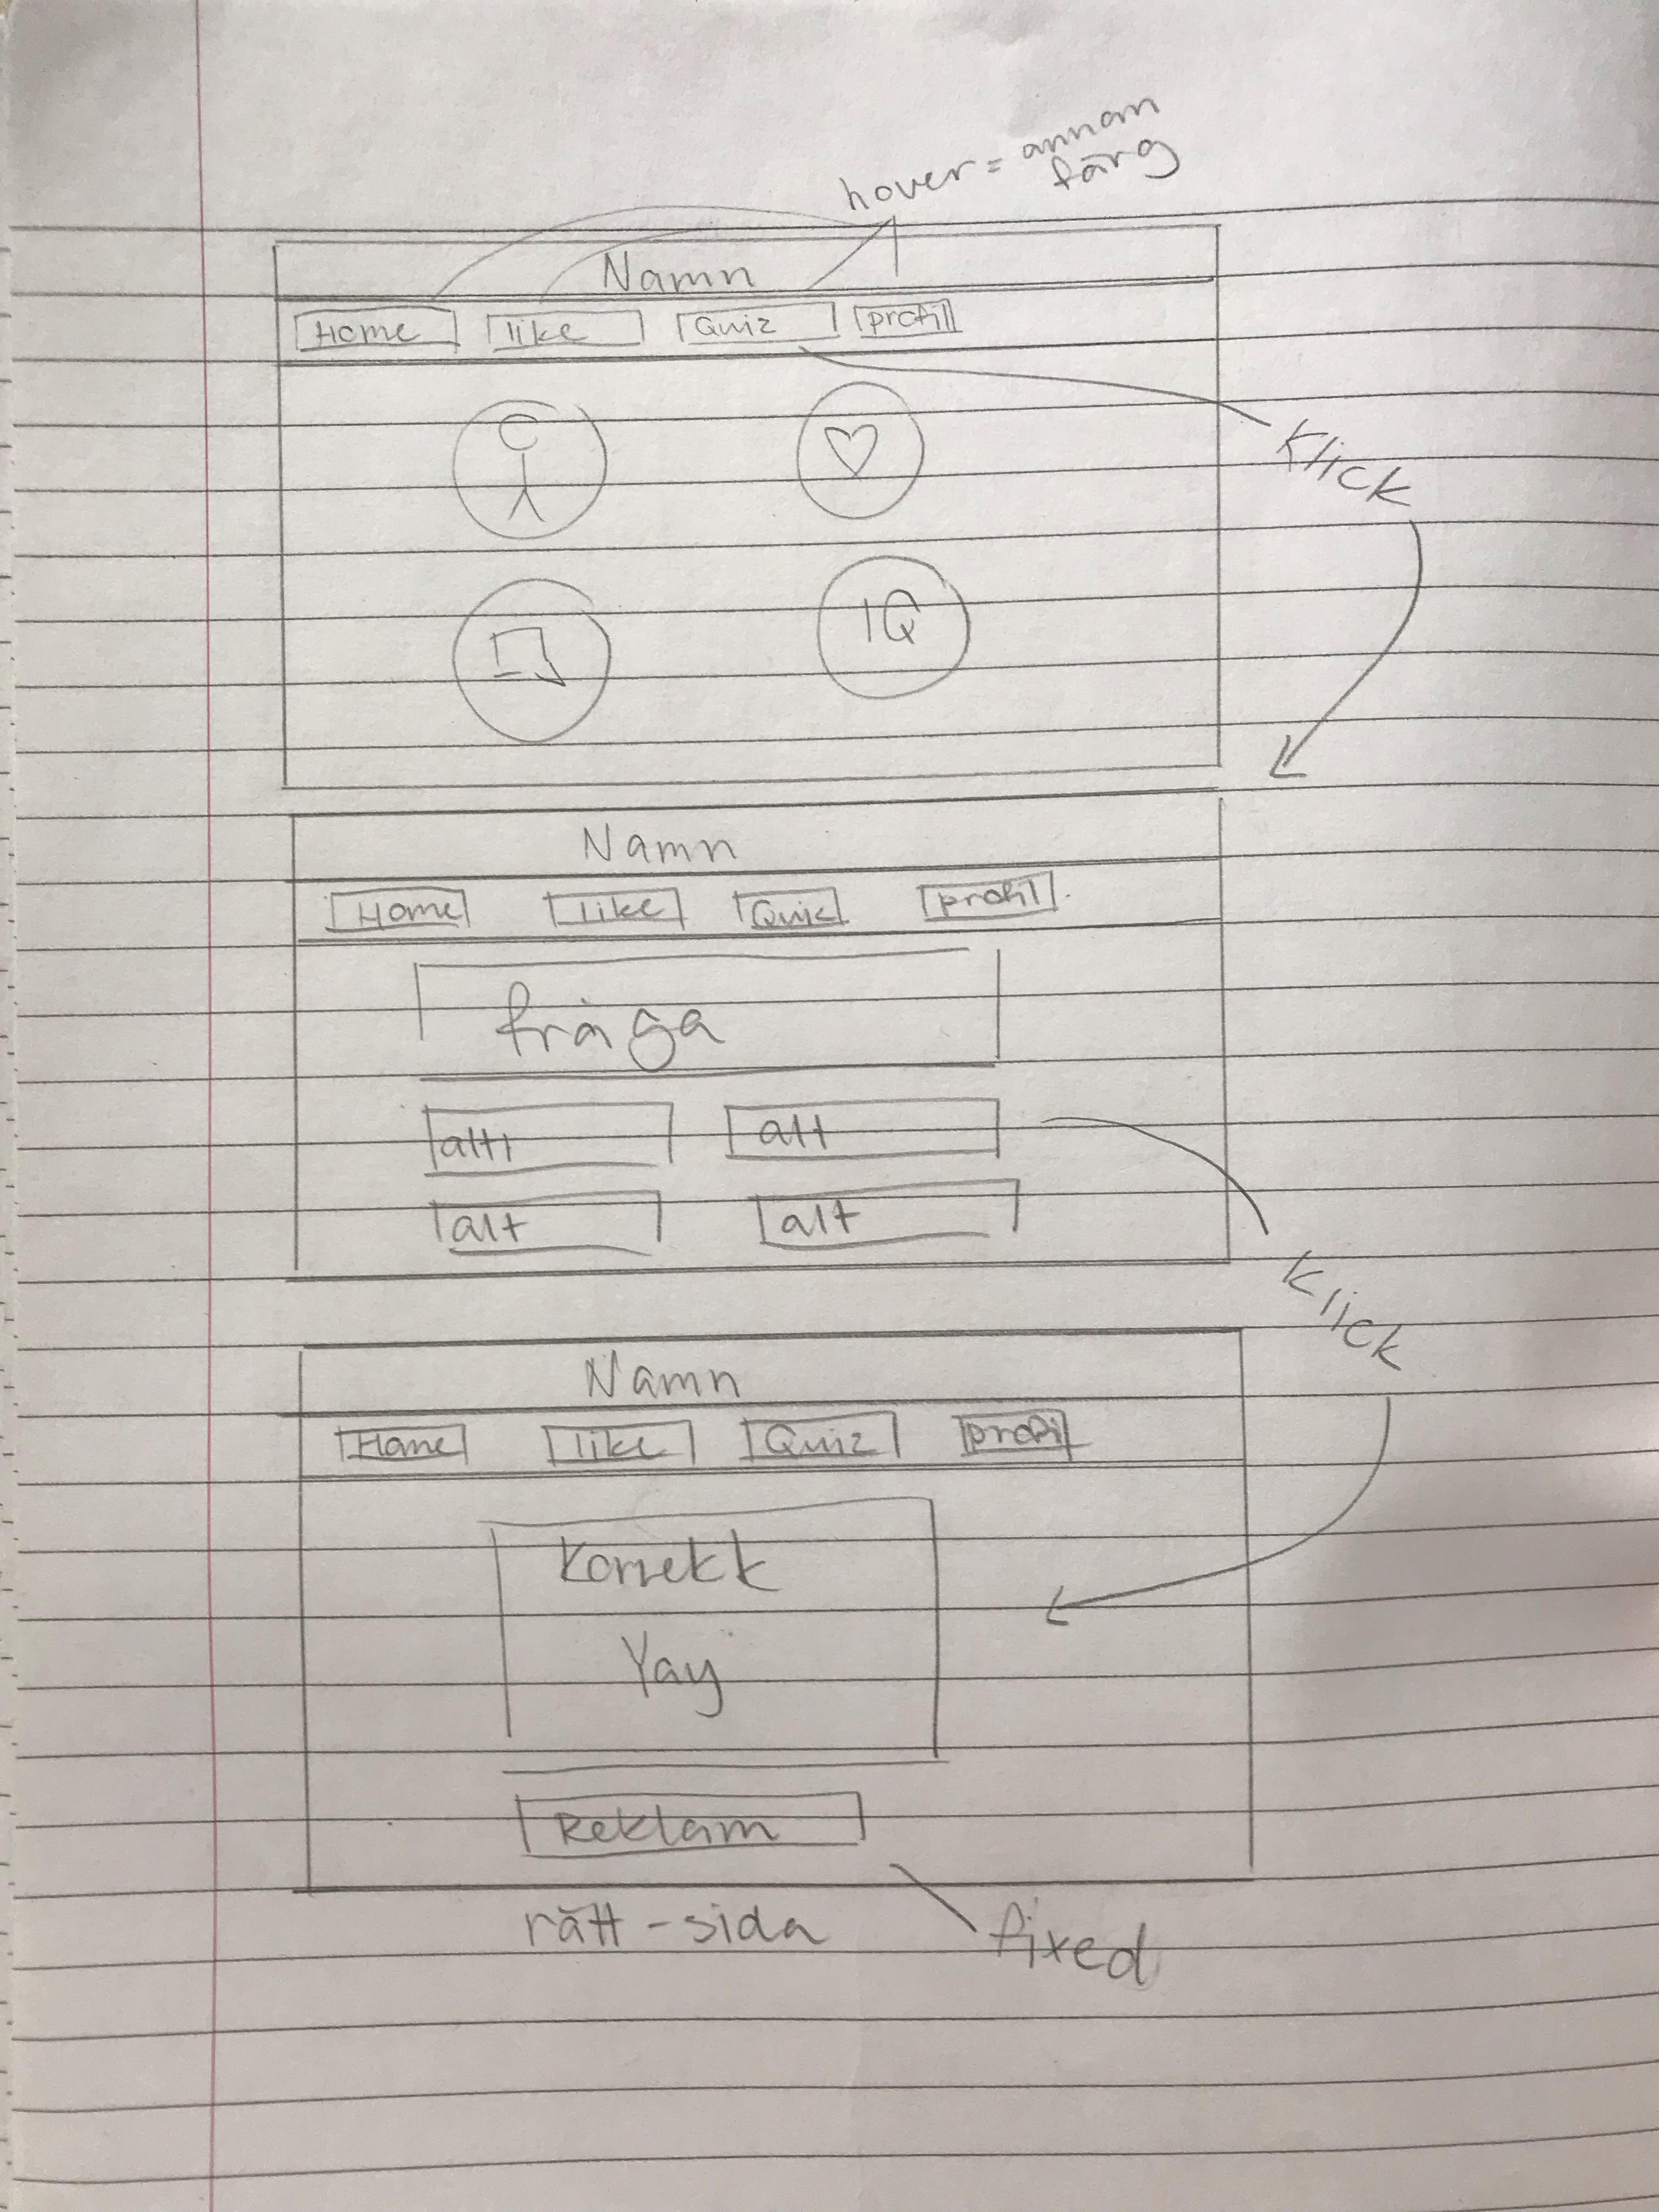 hover = annan
färg
Namn
Home like Quiz profil
Klick
IQ
Namn
Home like Quiz profil
fråga
alt1 alt
alt alt
Klick
Namn
Home like Quiz profil
Korrekk
Yay
Reklam
rätt-sida fixed